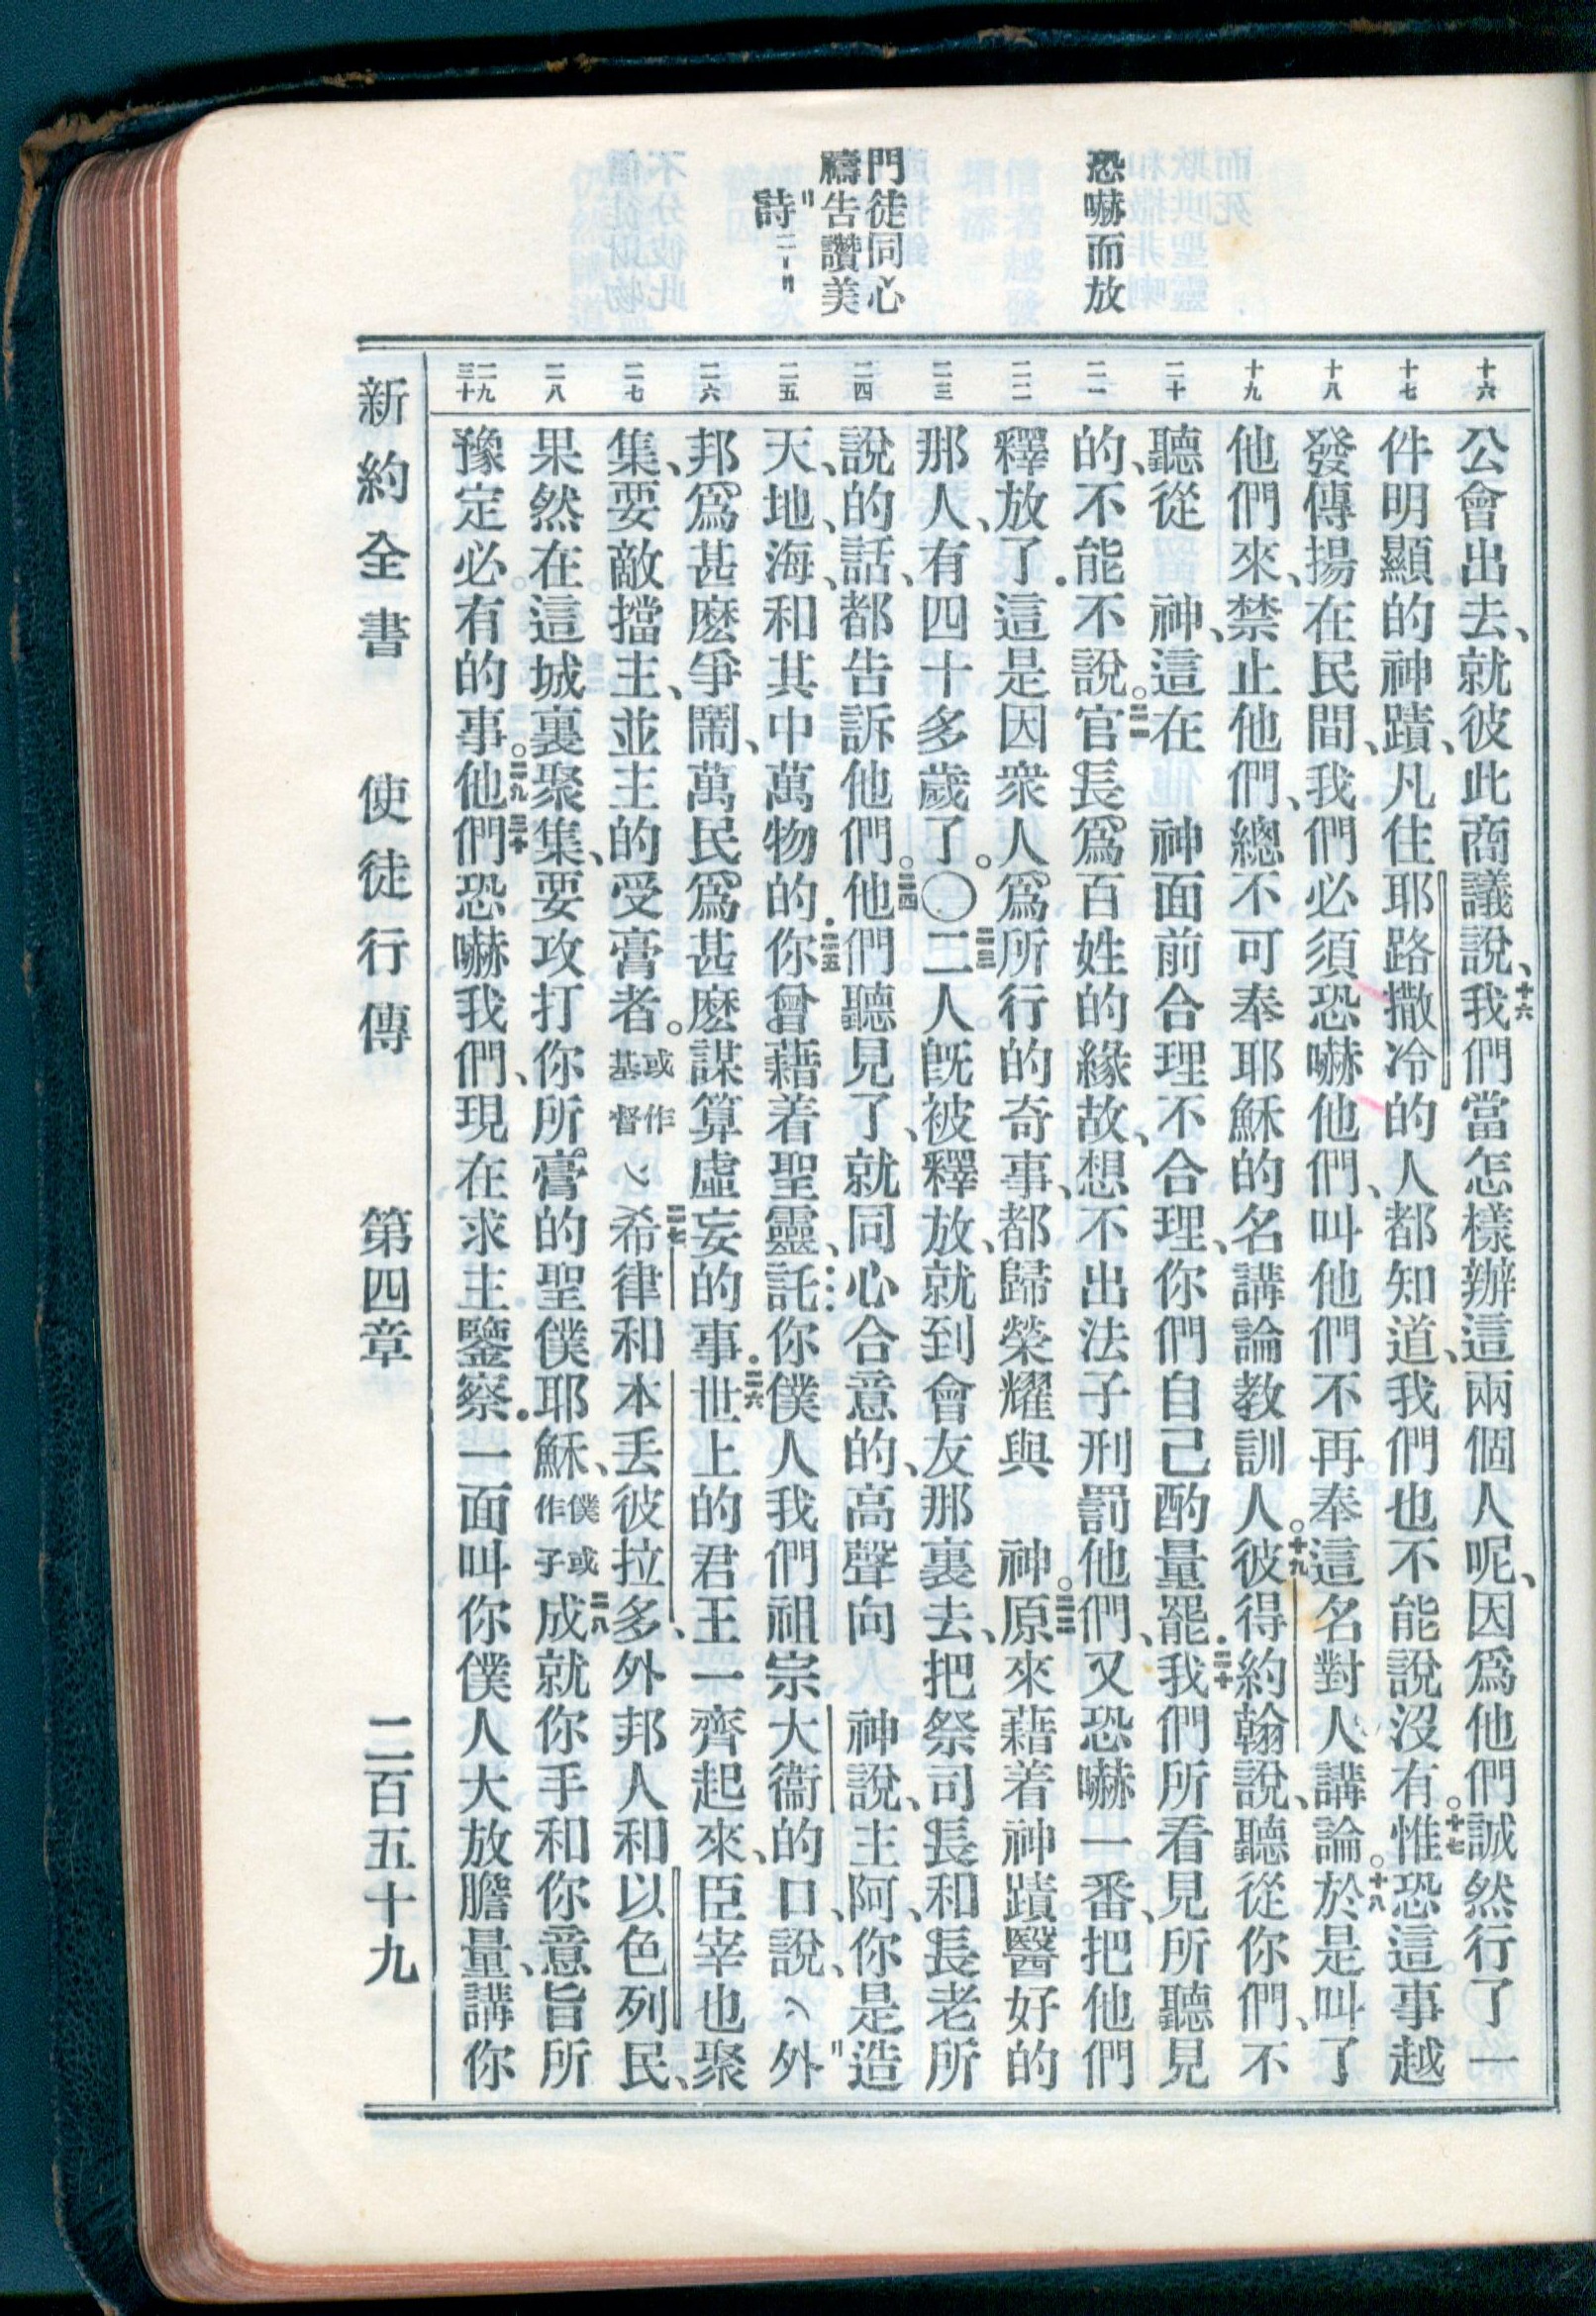 恐嚇而放
門徒同心
禱告讚美
詩
十六
十七
十八
十九
二十
二一
二二
二三
二四
二五
二六
二七
二八
二九
三十
公會出去、就彼此商議說、十六我們當怎樣辦這兩個人呢、因爲他們誠然行了一
件明顯的神蹟、凡住耶路撒冷的人都知道、我們也不能說沒有。十七惟恐這事越
發傳揚在民間、我們必須恐嚇他們、叫他們不再奉這名對人講論。十八於是叫了
他們來、禁止他們、總不可奉耶穌的名講論教訓人。十九彼得約翰說、聽從你們、不
聽從 神、這在 神面前合理不合理、你們自己酌量罷．二十我們所看見所聽見
的、不能不說。二一官長爲百姓的緣故、想不出法子刑罰他們、又恐嚇一番、把他們
釋放了．這是因衆人爲所行的奇事、都歸榮耀與 神。二二原來藉着神蹟醫好的
那人、有四十多歲了。〇二三二人旣被釋放、就到會友那裏去、把祭司長和長老所
說的話、都告訴他們。二四他們聽見了、就同心合意的、高聲向 神說、主阿、你是造
天、地、海、和其中萬物的．二五你曾藉着聖靈、託你僕人我們祖宗大衞的口、說、外
邦爲甚麽爭鬧、萬民爲甚麽謀算虛妄的事．二六世上的君王一齊起來、臣宰也聚
集、要敵擋主、並主的受膏者。或作基督二七希律和本丟彼拉多、外邦人和以色列民、
果然在這城裏聚集、要攻打你所膏的聖僕耶穌、僕或作子二八成就你手和你意旨所
豫定必有的事。二九他們恐嚇我們、現在求主鑒察．三十一面叫你僕人大放膽量、講你
新約全書 使徒行傳 第四章 二百五十九